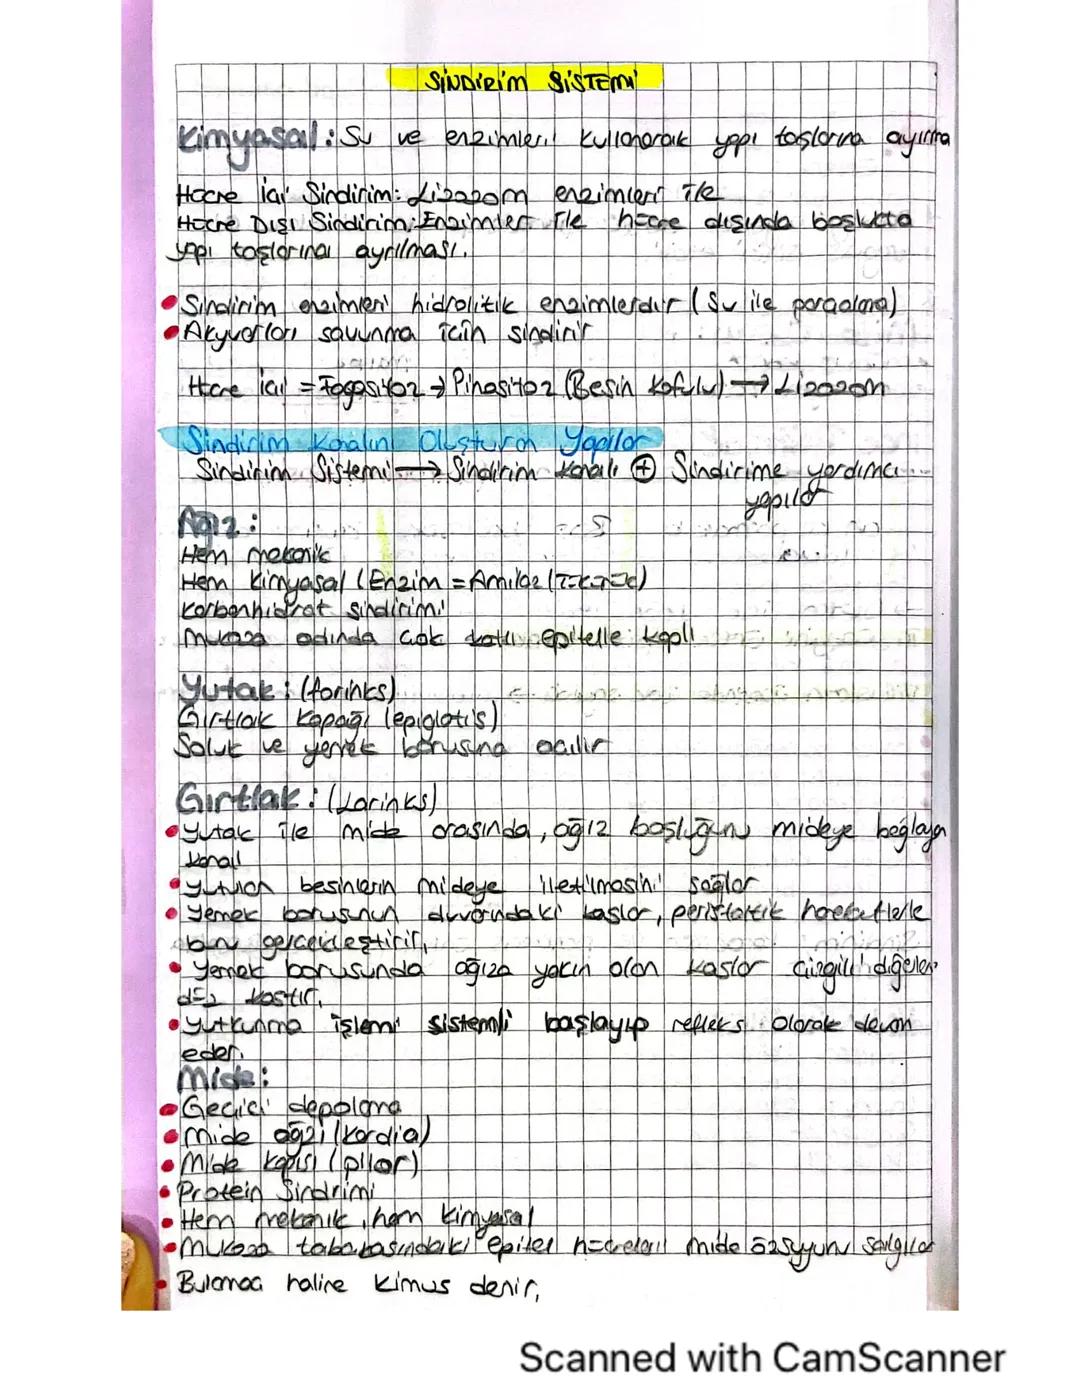 SİNDİRİM SİSTEMİ
Kimyasal: Su ve enzimleri kullanarak yapı taşlarına ayırma
Hücre İçi Sindirim: Lizozom enzimleri ile
Hücre Dışı Sindirim: Enzimler ile hücre dışında boşlukta
yapı taşlarına ayrılması.
• Sindirim enzimleri hidrolitik enzimlerdir (Su ile parçalama)
• Akyuvarları savunma için sindirir
Hücre içi = Fagositoz → Pinositoz (Besin kofulu) → Lizozom
Sindirim Kanalını Oluşturan Yapılar
Sindirim Sistemi → Sindirim kanalı + Sindirime yardımcı
yapılar
Ağız:
Hem mekanik
Hem kimyasal (Enzim = Amilaz (Tükürük)
karbonhidrat sindirimi
mukoza adında çok katlı epitelle kaplı
Yutak: (farinks)
Gırtlak kapağı (epiglotis)
Soluk ve yemek borusuna açılır
Gırtlak: (Larinks)
• Yutak ile mide arasında, ağız boşluğunu mideye bağlayan
kanal
• Yutulan besinlerin mideye iletilmesini sağlar
• Yemek borusunun duvarındaki kaslar, peristaltik hareketlerle
bunu gerçekleştirir,
• Yemek borusunda ağıza yakın olan kaslar çizgili diğerleri
düz kastır.
• Yutkunma işlemi sistemli başlayıp refleks olarak devam
eder.
Mide:
• Geçici depolama
• Mide ağzı (kardia)
• Mide kapısı (pilor)
• Protein Sindrimi
• Hem mekanik, hem kimyasal
• Mukoza tabakasındaki epitel hücreleri mide özsuyunu salgılar
• Bulamaç haline kimus denir,
Scanned with CamScanner